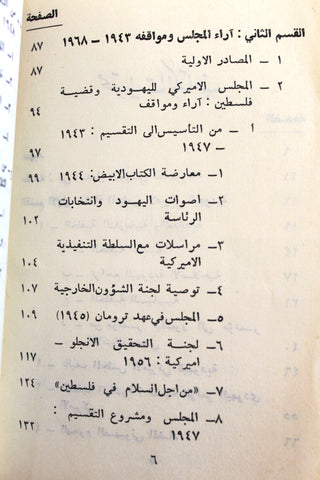 الصفحة
القسم الثاني : آراء المجلس ومواقفه ١٩٤٣ – ١٩٦٨ ٨٧
١ – المصادر الاولية ٨٧
٢ – المجلس الاميركي لليهودية وقضية
فلسطين : آراء ومواقف ٩٤
أ – من التأسيس الى التقسيم : ١٩٤٣
– ١٩٤٧ ٩٧
١– معارضة الكتاب الابيض: ١٩٤٤ ٩٩
٢– اصوات اليهود وانتخابات
الرئاسة ١٠٢
٣– مراسلات مع السلطة التنفيذية
الاميركية ١٠٤
٤– توصية لجنة الشؤون الخارجية ١٠٧
٥– المجلس في عهد ترومان (١٩٤٥) ١٠٩
٦– لجنة التحقيق الانجلو –
اميركية : ١٩٥٦ ١١٧
٧– «من اجل السلام في فلسطين» ١٢٤
٨– المجلس ومشروع التقسيم :
١٩٤٧ ١٣٢
٦